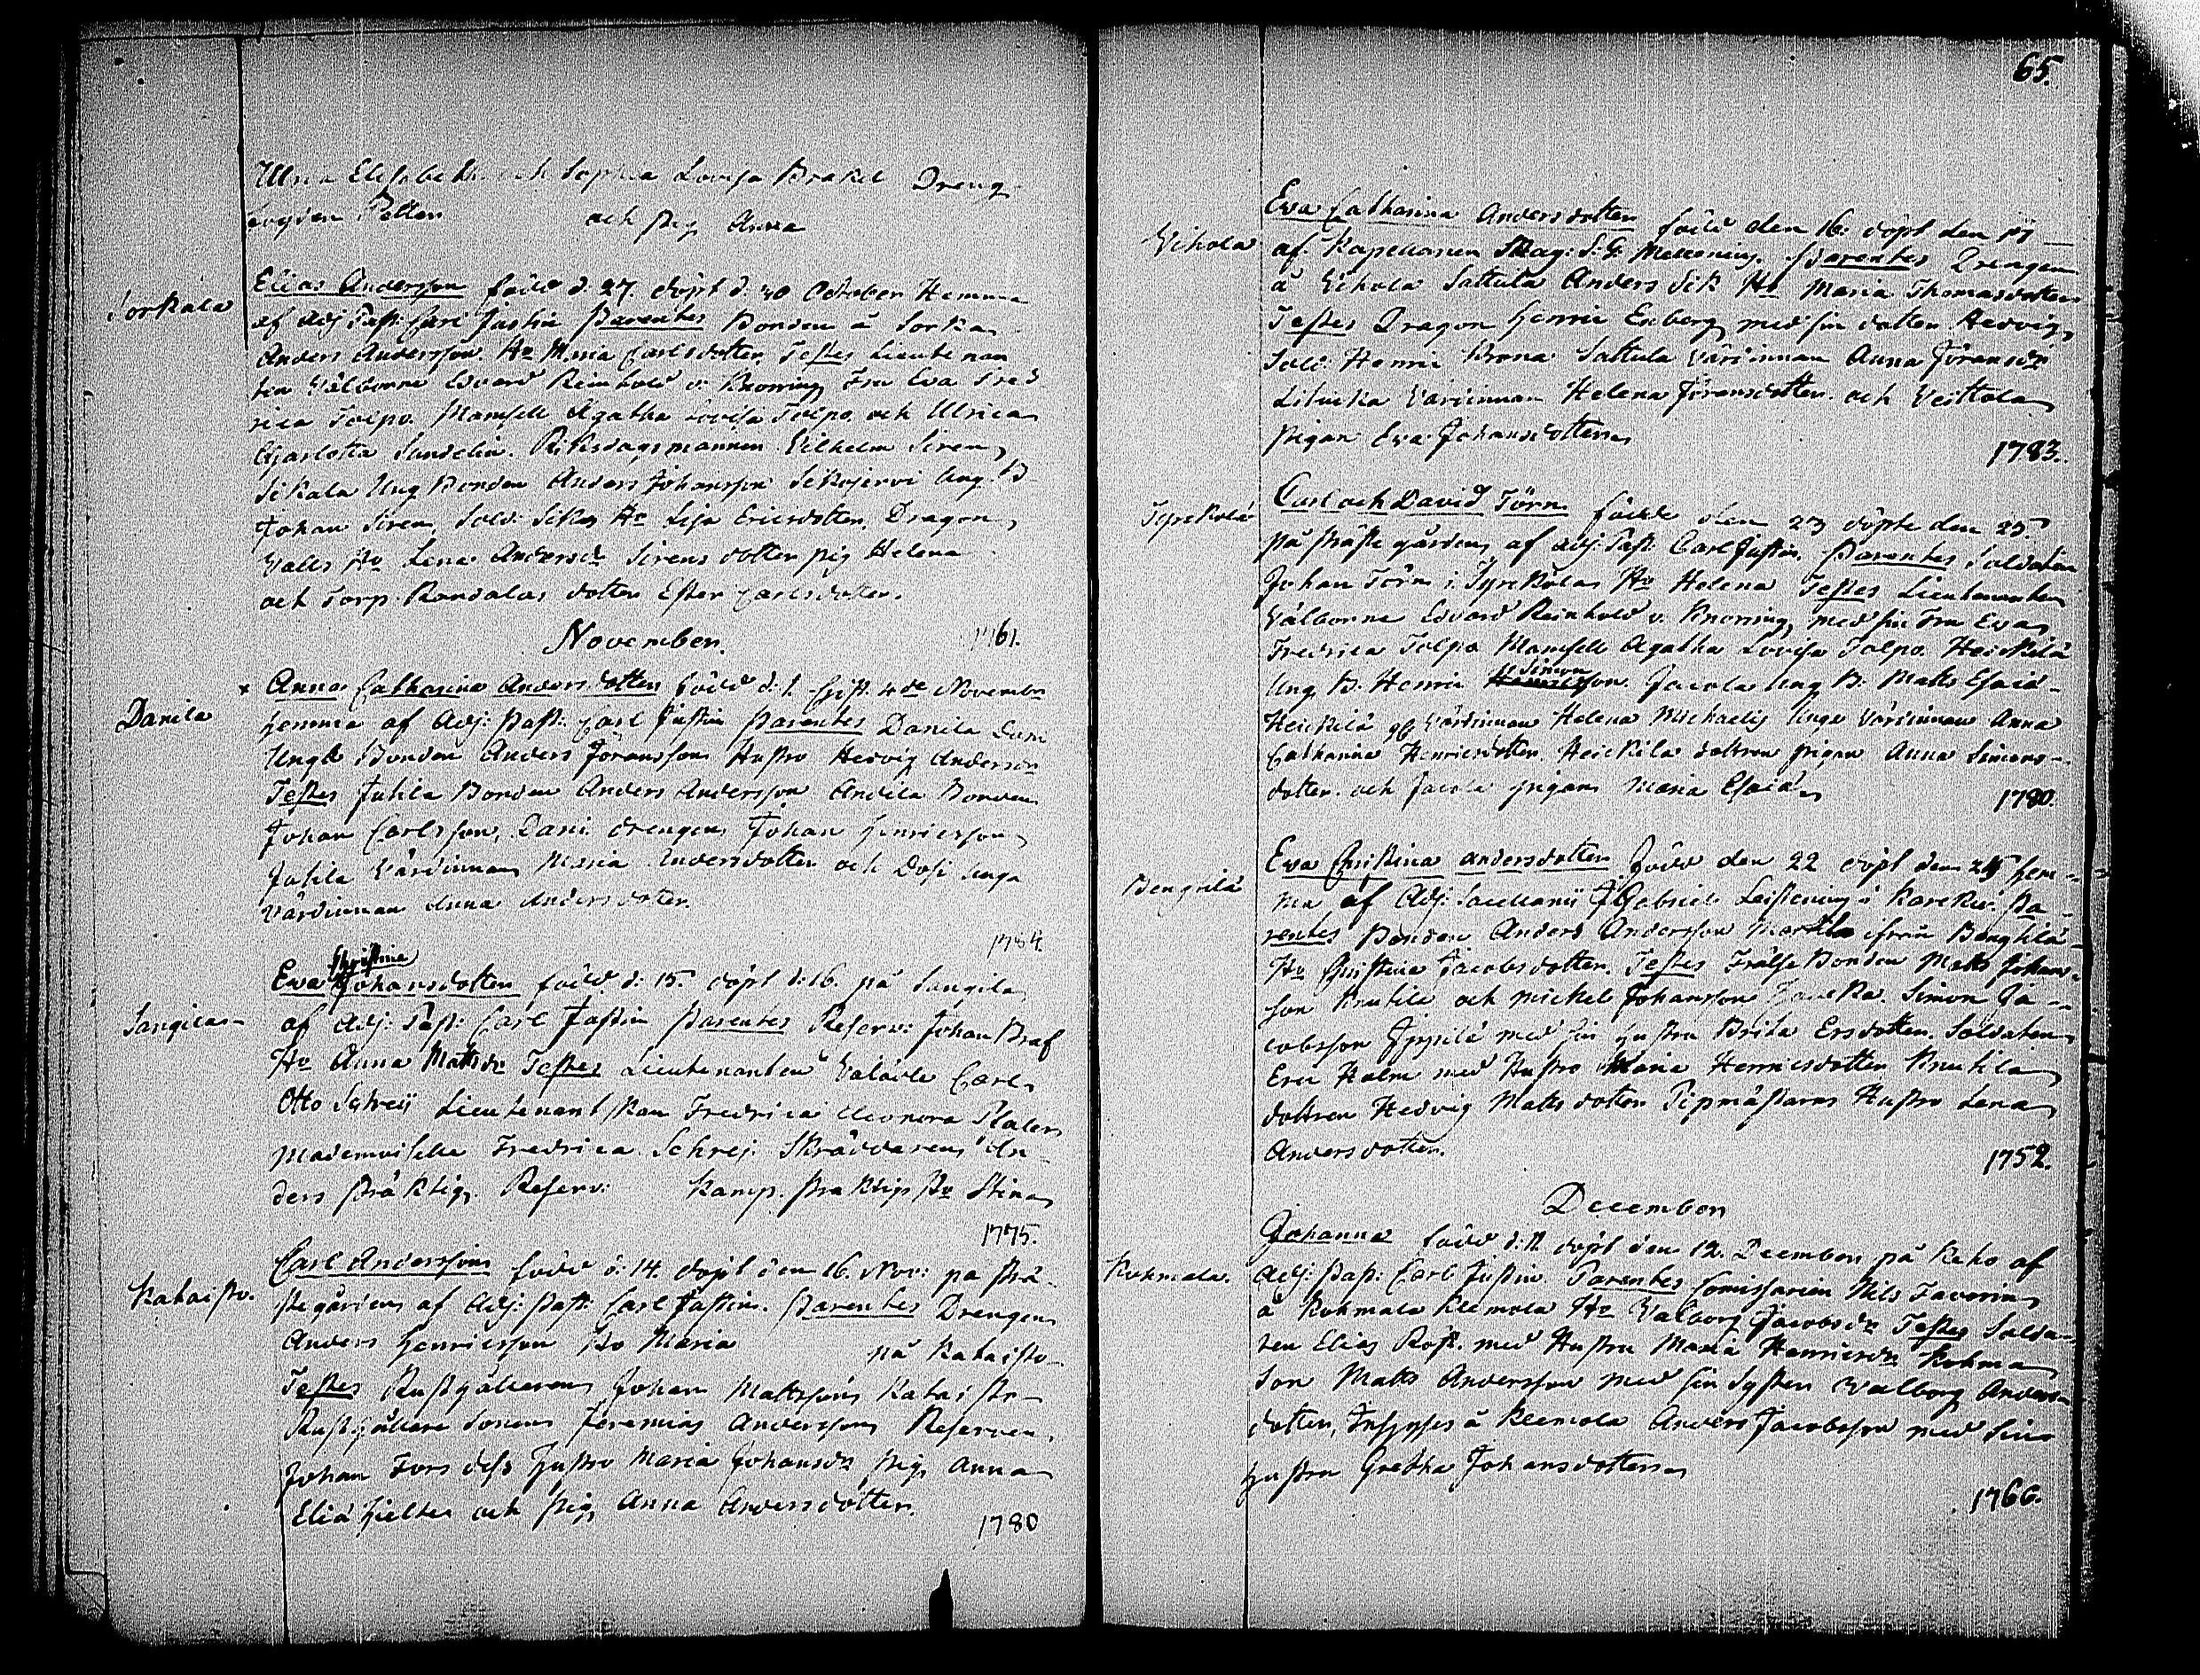 Ulrica Elisabeth och Sophia Lovisa Brakel Dreng
Petter och pig Anna
Sorkala
Elias Andersson född d. 27. döpt d. 30 October Hemma
af Adj. Past. Carl Justin Parentes Bonden å Sorka
Anders Andersson Ho Maria Carlsdotter Testes Lieutenan
ten Välborne Edvard Reinhold v. Knorring Fru Eva Fred
rica Tolpo. Mamsell Agatha Lovisa Tolpo och Ulrica
Charlotta Sundelin. Riksdagsmannen Vilhelm Siren
Sikala Ung Bonden Anders Johansson Sikojervi Ung B
Johan Siren, Sold. Ho Lisa Ericsdotter, Dragon
Valls Ho Lena Andersdr Sirens dotter pig Helena
och Torp. Randalas dotter Ester Carlsdotter.
1761.
November.
Danila
x Anna Catharina Andersdotter född d. 1 Christ. 4de November
hemma af Adj: Past: Carl Justin Parentes Danila
Unge Bonden Anders Göransson Hustro Hedvig Andersdr
Testes Juhila Bonden Anders Andersson Andila Bonden
Johan Carlsson, Dani drengen Johan Henricsson
Juhila Värdinnan Maria Andersdotter och Dosi unga
Värdinnan Anna Andersdotter.
1784.
Sangila
Christina
Eva Johansdotter född d. 15. döpt d. 16. på Sangila
af Adj: Past: Carl Justin Parentes Reserv: Johan Braf
Ho Anna Mattsdr Testes Lieutenanten Valädle Carl
Otto Schrey Lieutenantskan Fredrica Eleonora Plater
Mademoiselle Fredrica Schrej. Skräddaren An
ders präktig. Reserv: Kamp. praktigs Ho Stina
1775.
Kataisto.
Carl Andersson född d: 14. döpt den 16. Nov: på Prä
stegården af Adj: Past: Carl Justin. Parentes Drengen
Anders Henricsson Ho Maria på Kataisto
Testes Rusthållaren Johan Mattsson Kataisto
Rusthållare Sonen Jeremias Andersson Reserven
Johan Fors dess Hustro Maria Johansdr pig Anna
Elia Hjelte och pig Anna Andersdotter.
1780
65.
Vihola
Eva Catharina Andersdotter född den 16. döpt den 17
af Kapellanen Mag: S: G: Mellenius. Parentes Drengen
å Vihola Sattula Anders Sik Ho Maria Thomasdotter
Testes Dragon Henric Enberg med sin dotter Hedvig
Sold: Henric Krona Sattula Värdinnan Anna Göransdr
Värdinnan Helena Göransdotter och Veittola
Pigan Eva Johansdotter
1783.
Tyrekölä
Carl och David Törn födde den 23 döpte den 25.
på Prästegården af Adj: Past: Carl Justin. Parentes Soldaten
Johan Törn i Tyrkölä Ho Helena Testes Lieutenanten
Välborne Edvard Reinhold v: Knorring med sin Fru Eva
Fredrica Tolpo Mamsell Agatha Lovisa Tolpo. Heickilä
Simon
Ung B. Henric son. Jacola Ung B: Matts Esaid
Heickilä Värdinnan Helena Michaelis Unge Värdinnan Anna
Catharina Henricsdotter Heickila dottren pigan Anna Simons-
dotter och Jacola pigan Maria Esaid
1780.
Bengtilä
Eva Christina Andersdotter född den 22 döpt den 24 hem-
ma af Adj: Sacellanii Gabriel Leistenius i Karcku: Pa
rentes Bonden Anders Andersson Marttila ifrån Bengtilä
Ho Christina Jacobsdotter. Testes Frälse Bonden Matts Johans-
son Knutila och Mickel Johansson Simon Ja-
cobsson Ippilä med sin hustru Brita Ersdotter. Soldaten
Eric Holm med Hustro Maria Henricsdotter Knutila
dottren Hedvig Mattsdotter Pipmästarens Hustro Lena
Andersdotter.
1752.
December
Kuhmala.
Johanna född d: 11. döpt den 12. December på Keho af
Adj: Past: Carl Justin Parentes Comissarien Nils Favorin
å Kuhmala Klemola Ho Valborg Jacobsdr Testes Solda
ten Elias Rost. med Hustru Maria Henricsdr Kuhma
Son Matts Andersson med sin Syster Walborg Anders
dotter, Inhyses å Klemola Anders Jacobsson med Sin
Hustru Gretha Johansdotter
1766.